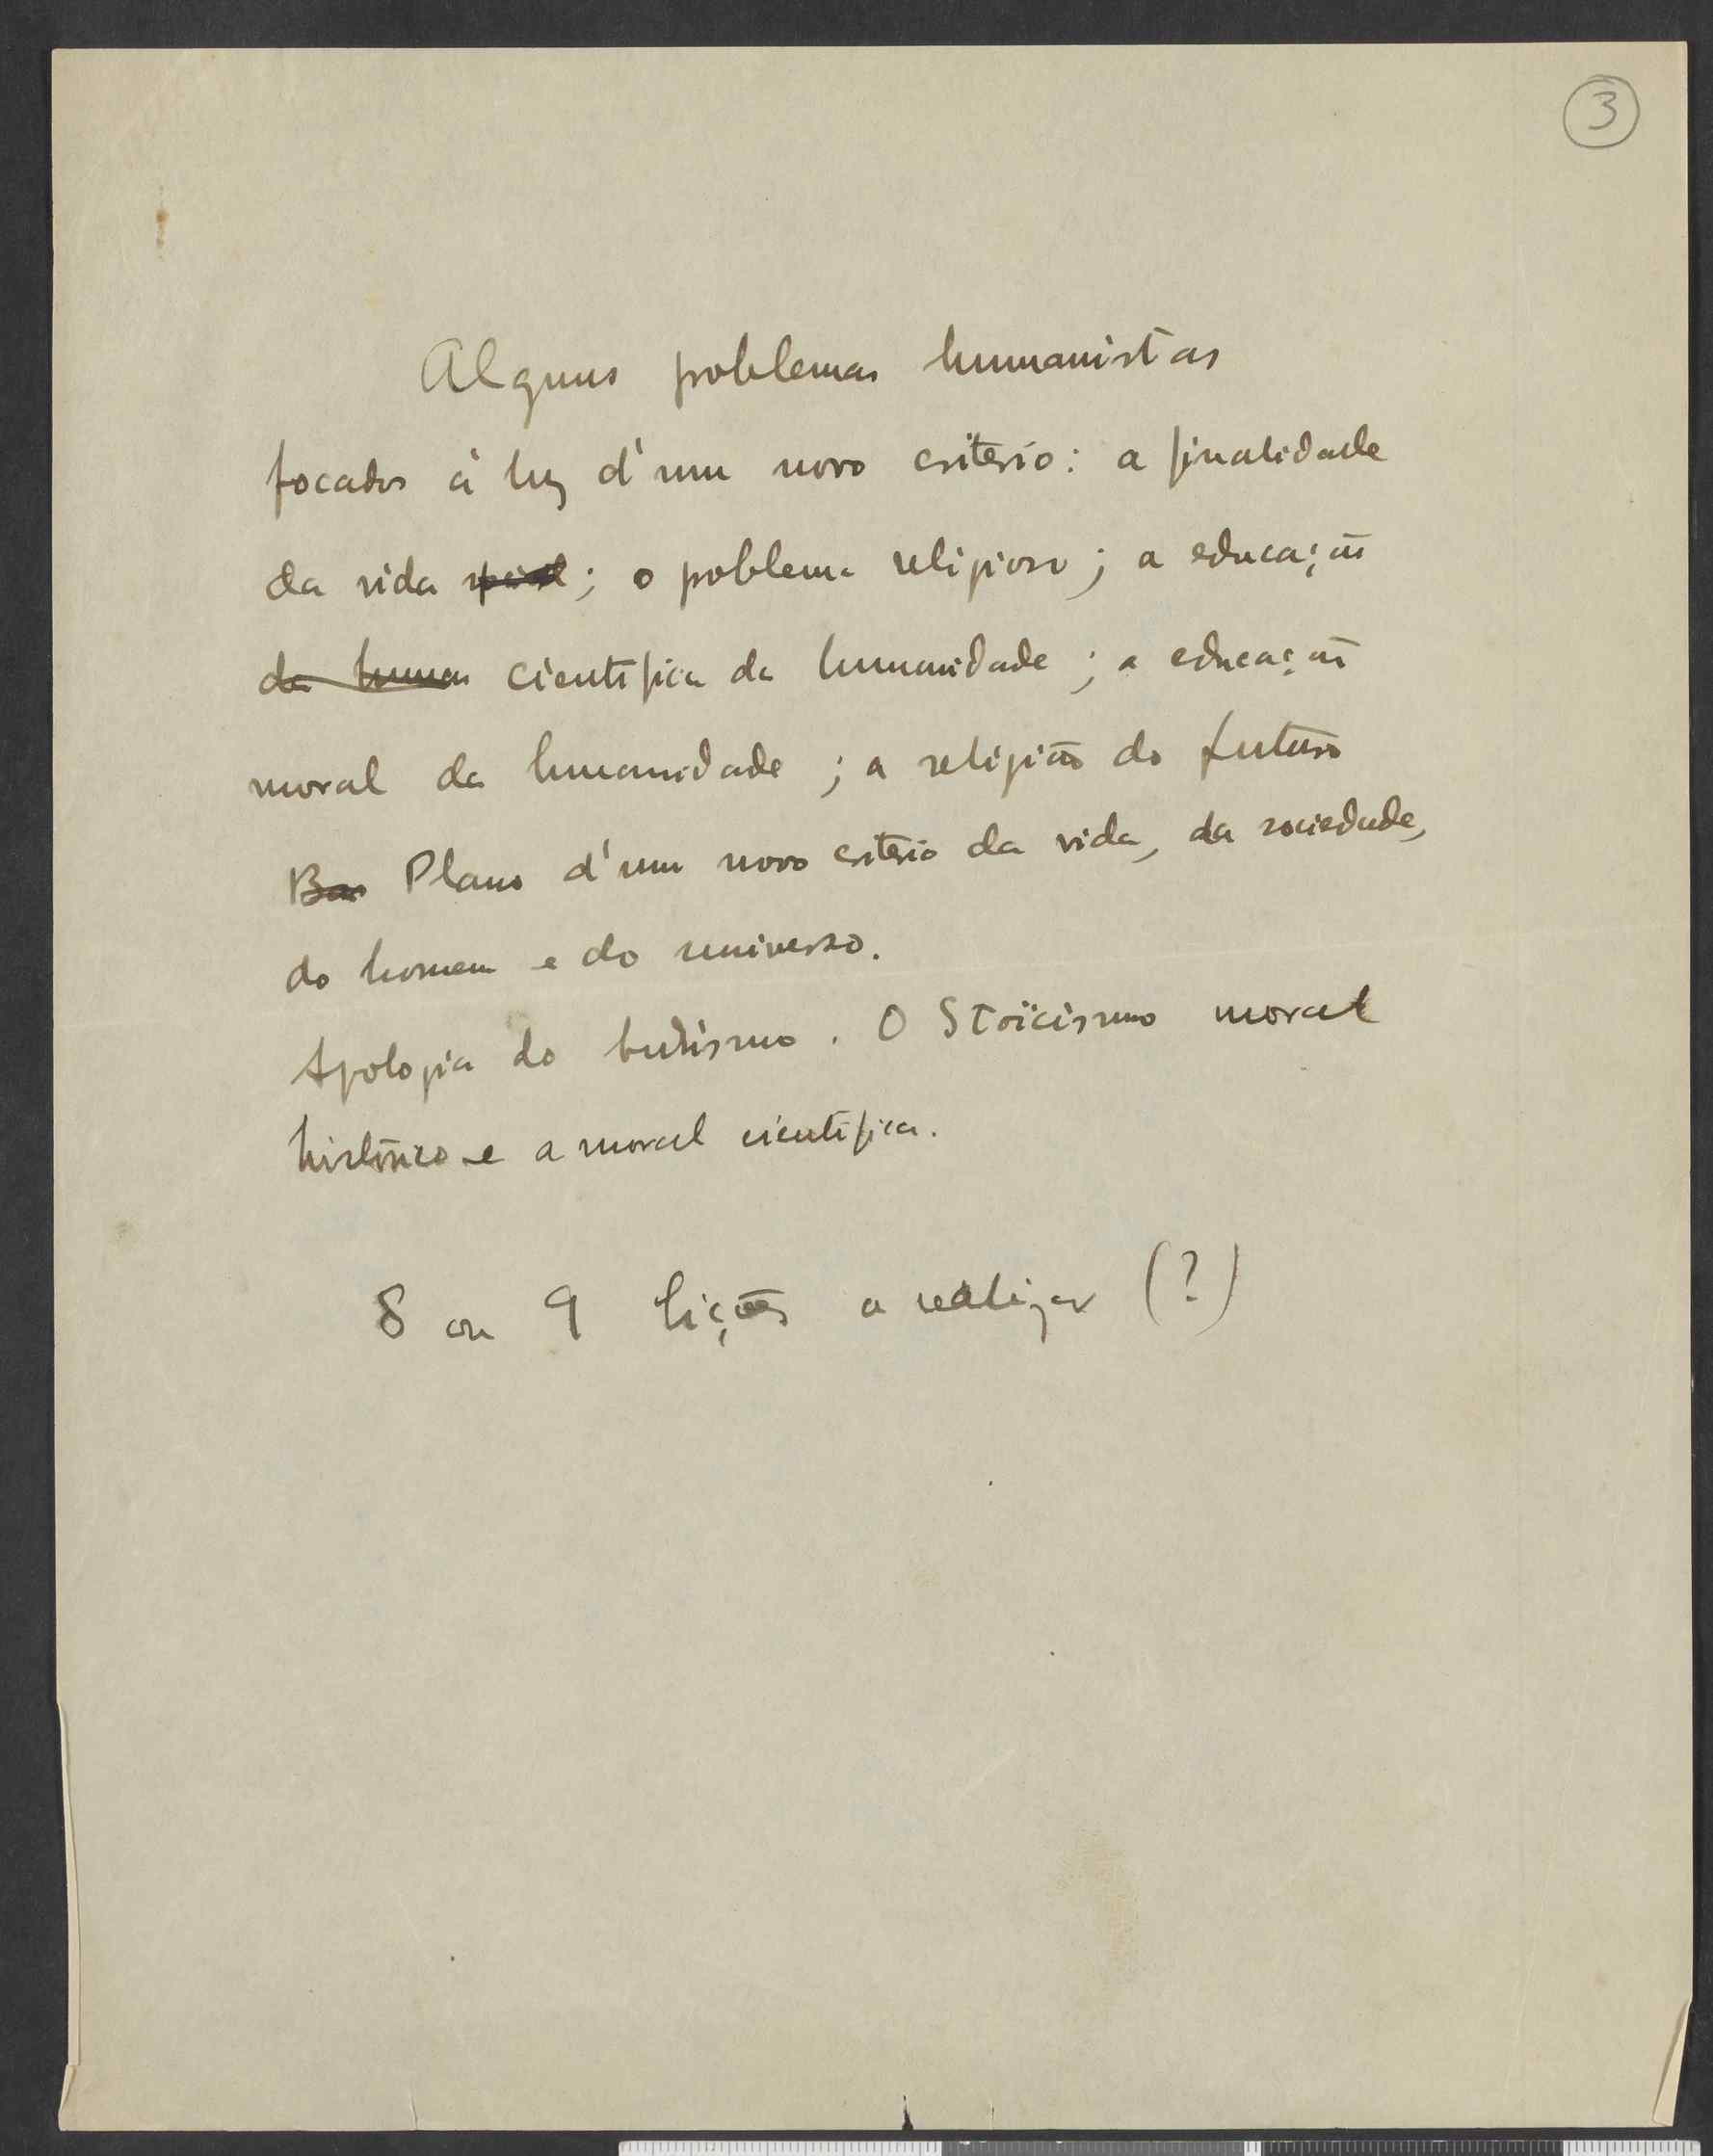 3
Alguns problemas humanistas
focados á luz d'um novo criterio: a finalidade
da vida social; o problema religioso; a educação
da human cientifica da humanidade; a educação
moral da humanidade; a religião do futuro
Bas Plano d'um novo criterio da vida, da sociedade,
do homem e do universo.
Apologia do budismo. O Stoïcismo moral
histórico e a moral cientifica.
8 ou 9 lições a realizar (?)